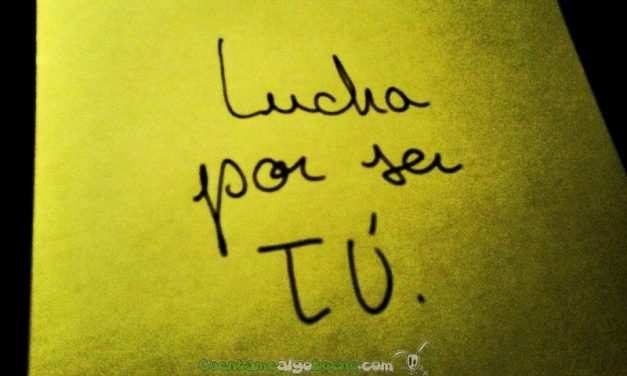 Lucha
por ser
TÚ.
Cuentamealgobueno.com